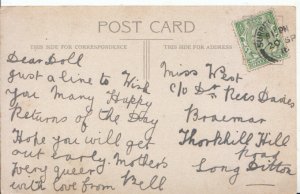 POST CARD
THIS SIDE FOR CORRESPONDENCE
THIS SIDE FOR ADDRESS
Dear Doll
just a line to Wish
you Many Happy
Returns of the Day
Hope you will get
out early. Mothers
very queer
with love from Bell
Miss West
c/o Dr Rees Davies
Braemar
Thorkhill Hill
Road
Long Ditton